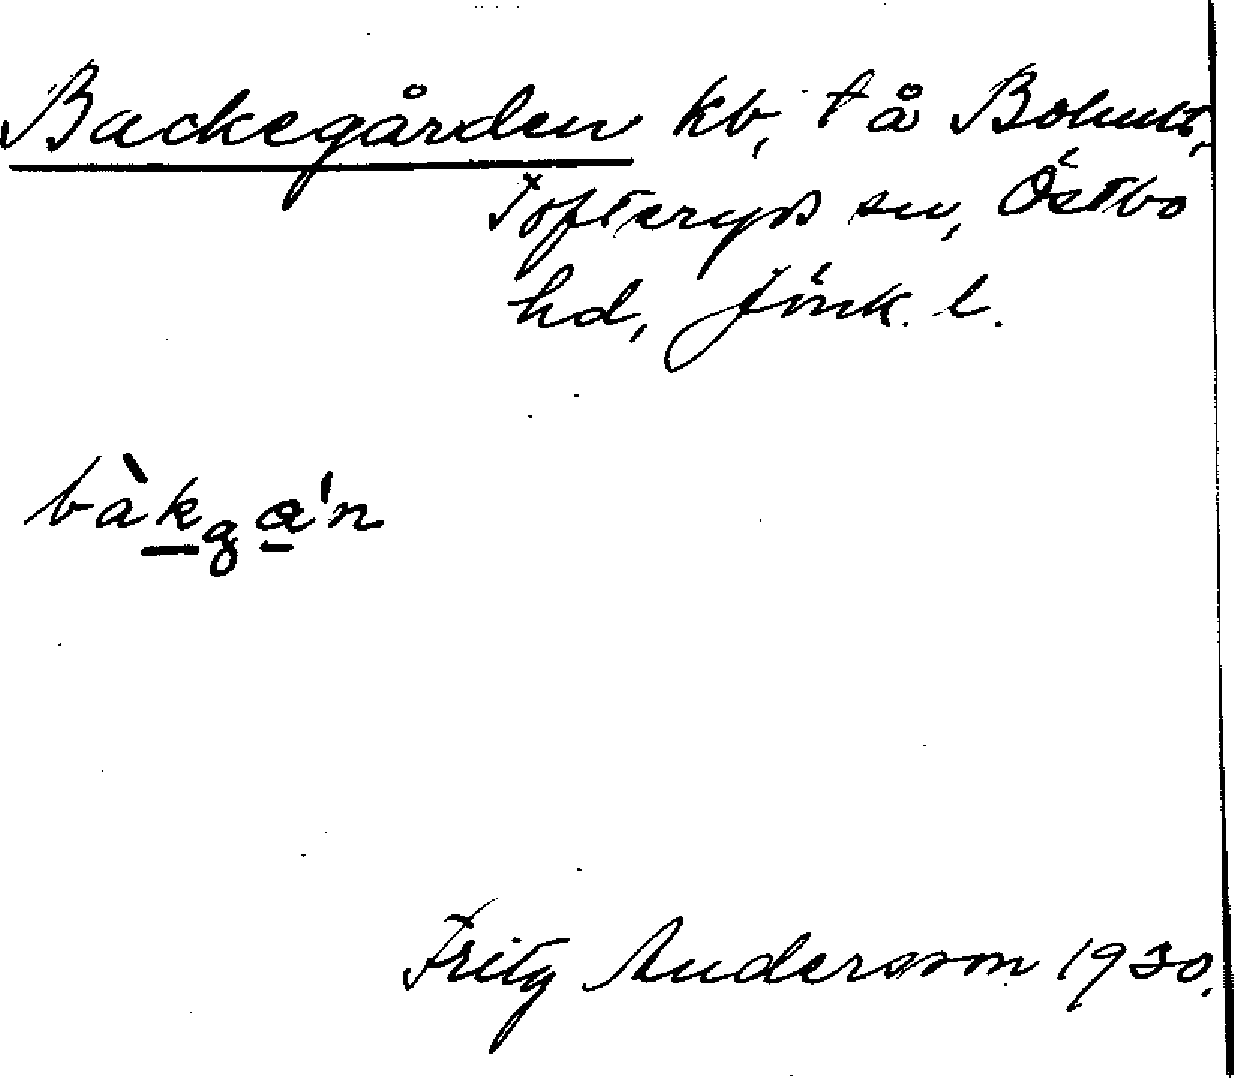 Backegården kb, † å Bohult,
Tofteryds sn, Östbo
hd, Jönk. l.
Fritz Andersson 1930.